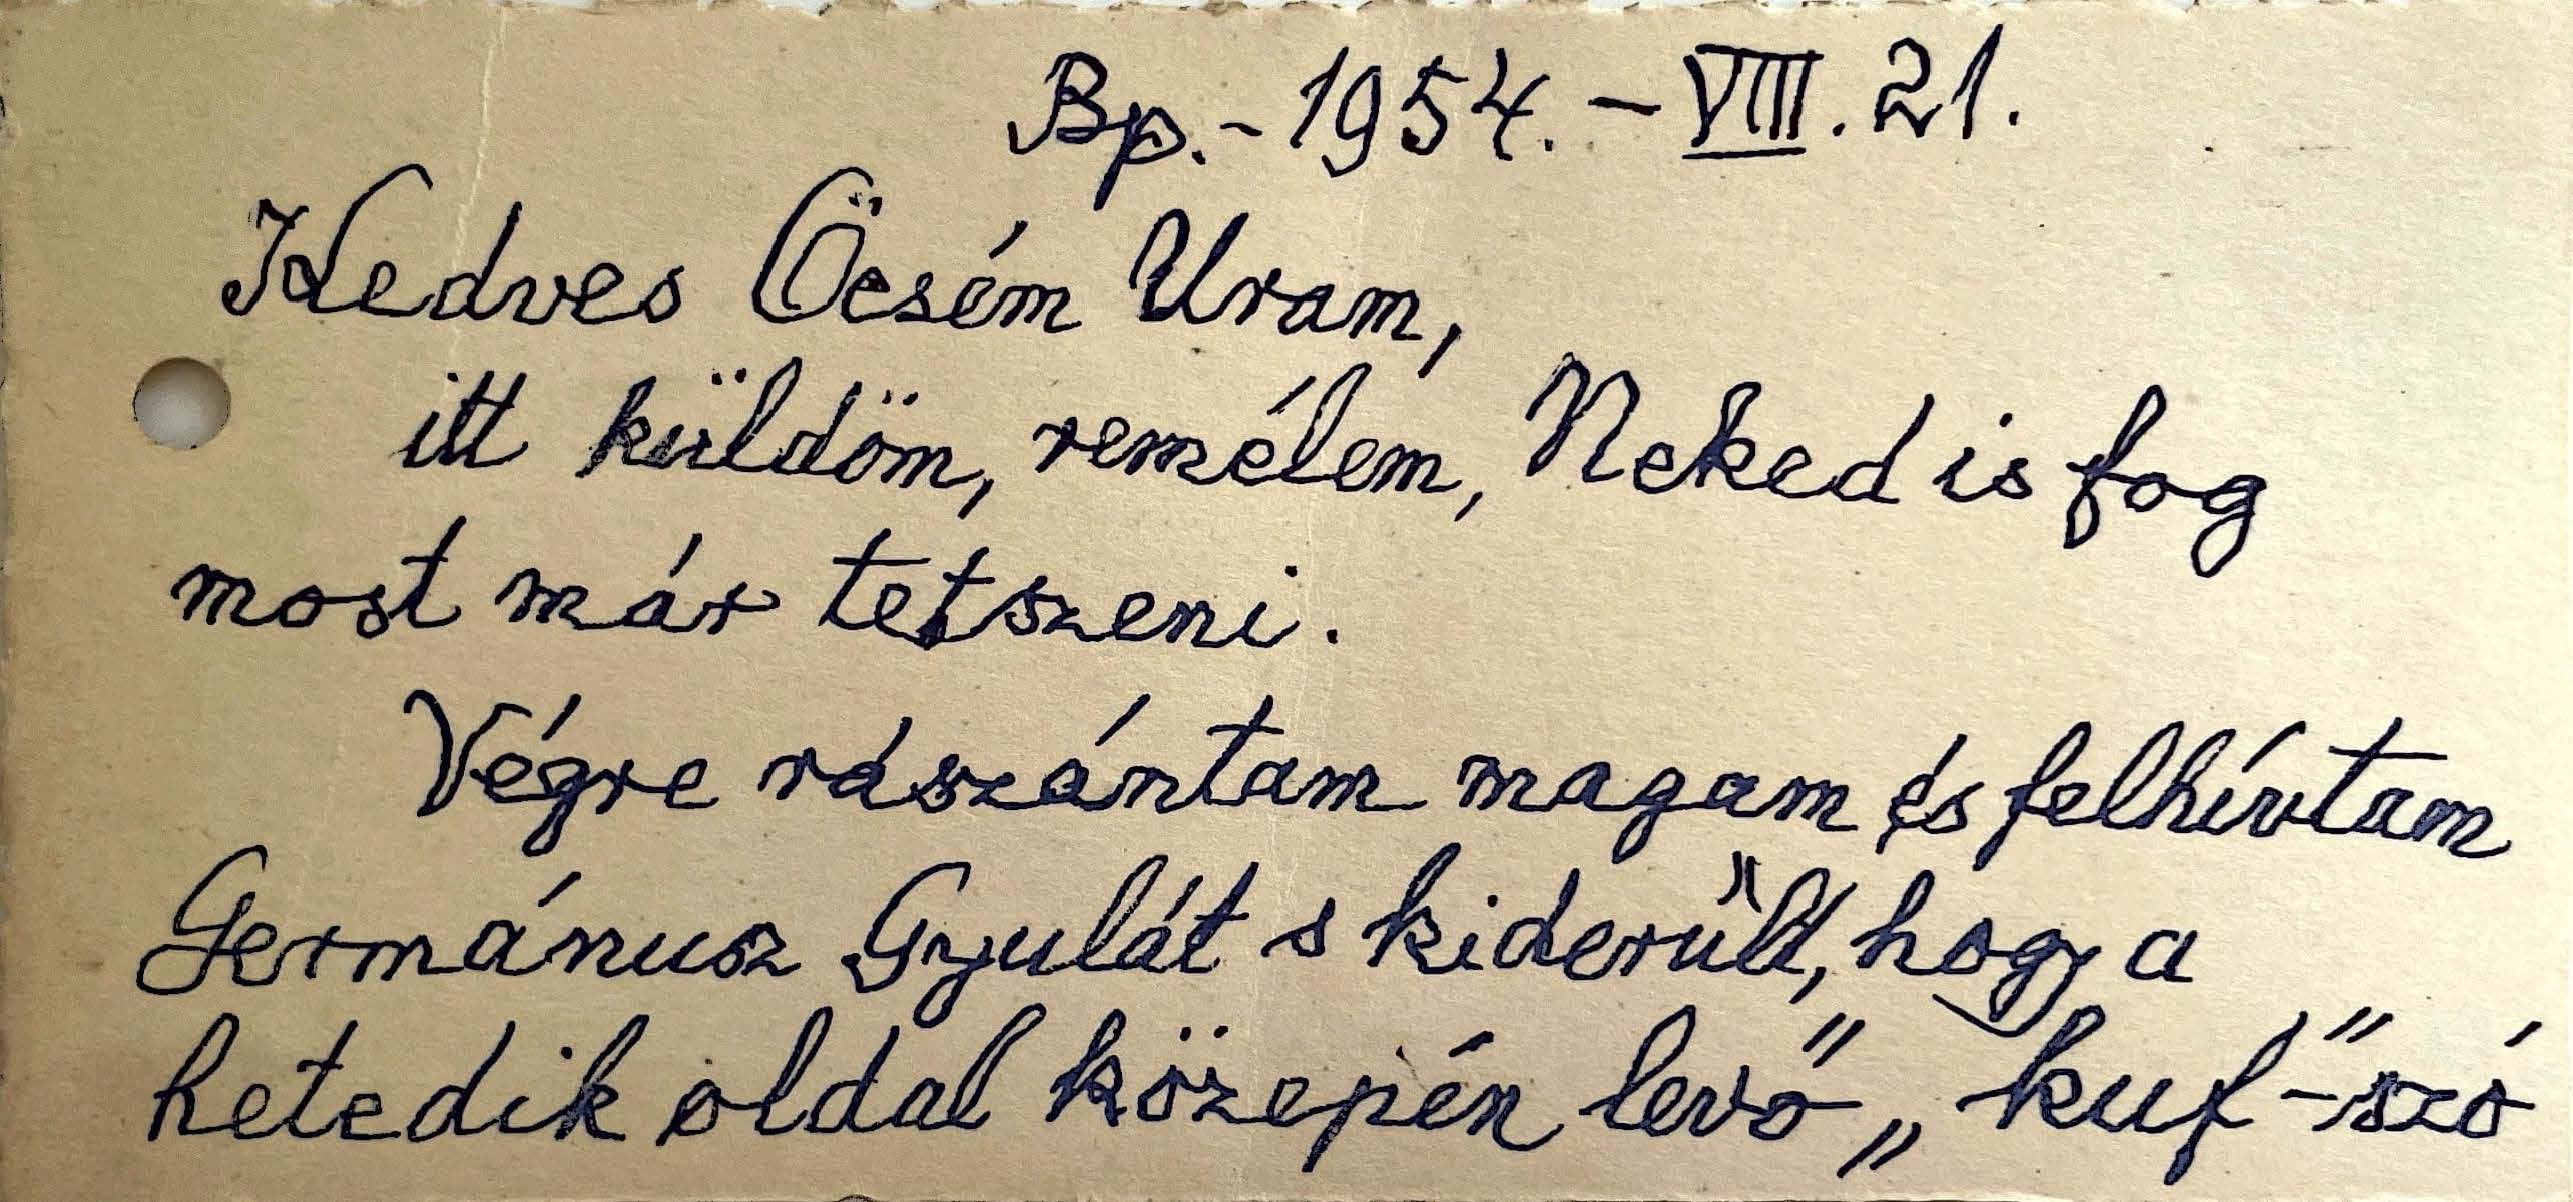 Bp.- 1954. - VIII. 21.
Kedves Öcsém Uram,
itt küldöm, remélem, Neked is fog
most már tetszeni.
Végre rászántam magam és felhívtam
Germánusz Gyulát s kiderűlt, hogy a
hetedik oldal közepén levő „kuf-"szó